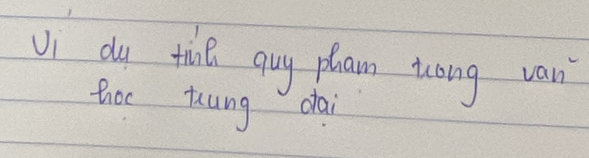 Ví dụ tính quy phạm trong văn
học trung đại